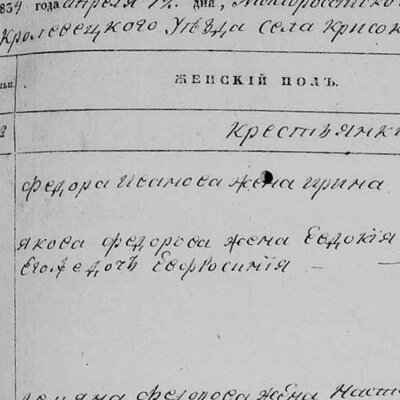 1834 года апреля 19. дня, Малороссійско
Кролевецкого Уѣзда села
ЖЕНСКІЙ ПОЛЪ.
Крестьянки
Федора Иванова жена Ирина
Якова Федорова жена Евдокія
Его дочь Евфросинія
Федорова жена Наст